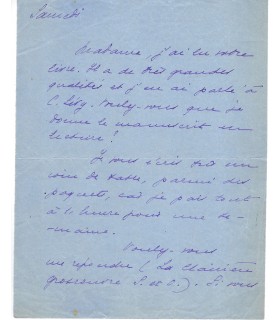 Samedi
Madame, j'ai lu votre
livre. Il a de très grandes
qualités et j'en ai parlé à
Voulez-vous que je
donne le manuscrit en
lecture ?
Je vous écris sur un
coin de table, parmi des
paquets, car je pars tout
à l'heure pour une se-
maine.
Voulez-vous
me répondre (La
S. et O.). Si vous